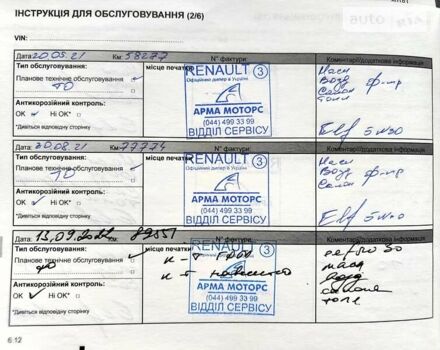 ІНСТРУКЦІЯ ДЛЯ ОБСЛУГОВУВАННЯ (2/6)
VIN:
Дата: 20.05.21 Км: 58277 N° фактури: Коментарі/додаткова інформація
Тип обслуговування: місце печатки
Планове технічне обслуговування
ТО
Антикорозійний контроль:
OK ✓ Ні OK* □
*Дивіться відповідну сторінку
RENAULT 3
Офіційний дилер в Україні
АРМА МОТОРС
(044) 499 33 99
ВІДДІЛ СЕРВІСУ
Масл
Возд
Салон ф-тр
Топл
Elf 5w30
Дата: 30.08.21 Км: 77774 N° фактури: Коментарі/додаткова інформація
Тип обслуговування: місце печатки
Планове технічне обслуговування □
ТО
Антикорозійний контроль:
OK ✓ Ні OK* □
*Дивіться відповідну сторінку
RENAULT 3
Офіційний дилер в Україні
АРМА МОТОРС
(044) 499 33 99
ВІДДІЛ СЕРВІСУ
Масл
Возд
Салон ф-тр
Elf
Дата: 13.09.2022 Км: 89551 N° фактури: Коментарі/додаткова інформація
Тип обслуговування: місце печатки
Планове технічне обслуговування □
ТО
Антикорозійний контроль:
OK ✓ Ні OK* □
*Дивіться відповідну сторінку
RENAULT 3
к-т ГРМ
к-т
АРМА МОТОРС
(044) 499 33 99
ВІДДІЛ СЕРВІСУ
масл
возд
салон
топл
6.12